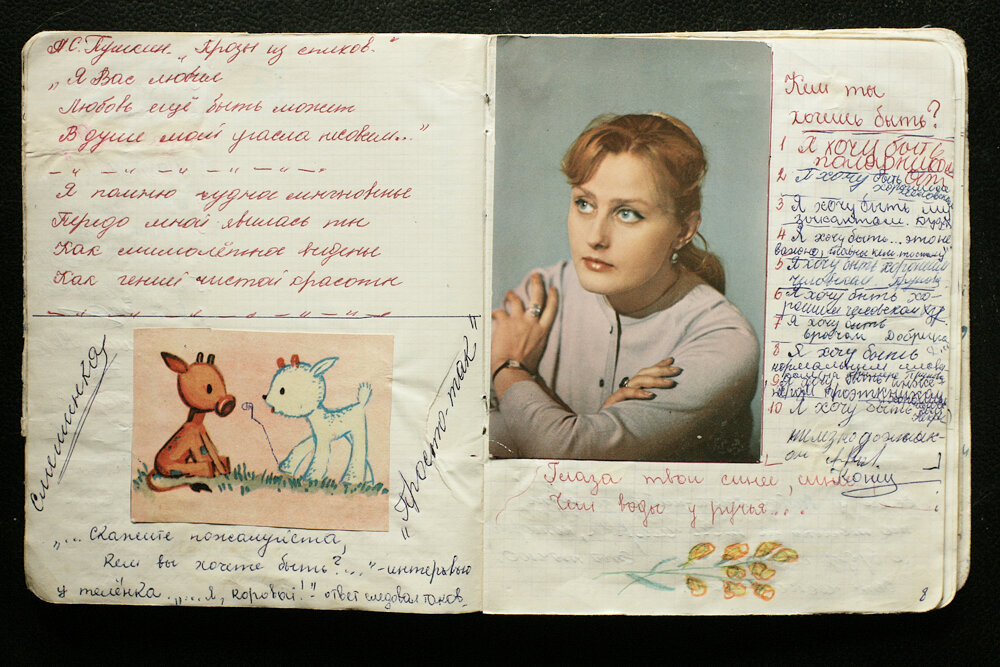 А.С. Пушкин „Прозы из стихов."
„Я Вас любил
Любовь ещё быть может
В душе моей угасла не совсем..."
Я помню чудное мгновенье
Передо мной явилась ты
Как мимолётное виденье
Как гений чистой красоты
смешинка
„Просто так"
„... Скажите пожалуйста,
Кем вы хочете быть?..." - интервью
у телёнка. „... Я, коровой!" - ответ следовал таков.
Кем ты
хочешь быть?
1 Я хочу быть
2 Я хочу быть
3 Я хочу быть
4 Я хочу быть... это не
важно, главны кем
5 Я хочу быть хорошим
человеком
6 Я хочу быть хо-
рошим человеком
7 Я хочу быть
врачом
8 Я хочу быть
нормальным
9
10 Я хочу быть
Глаза твои синее,
Чем воды у ручья...
8